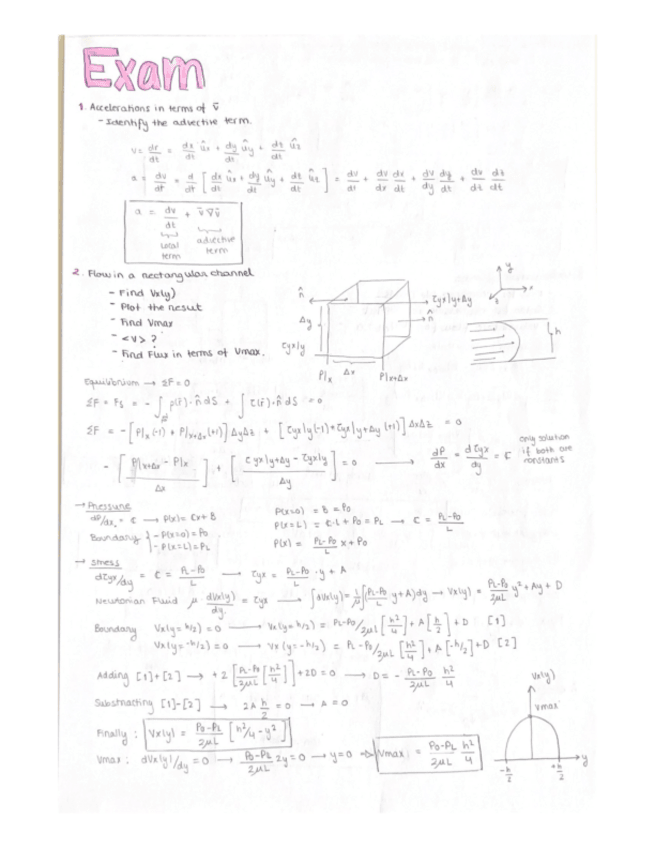 Exam
1. Accelerations in terms of v̄
- Identify the advective term.
v = dr/dt = dx/dt ûx + dy/dt ûy + dz/dt ûz
a = dv/dt = d/dt [ dx/dt ûx + dy/dt ûy + dz/dt ûz ] = dv/dt + dv/dx dx/dt + dv/dy dy/dt + dv/dz dz/dt
a = dv/dt + v̄ ∇ v̄
total term advective term
2. Flow in a rectangular channel
- Find Vx(y)
- Plot the result
- Find Vmax
- <V> ?
- Find Flux in terms of Vmax.
n̂ τyx|y+Δy
Δy n̂
τyx|y
P|x Δx P|x+Δx
y x z
h
Equilibrium → ΣF = 0
ΣF = Fs = - ∫ p(r̄)·n̂ dS + ∫ τ(r̄)·n̂ dS = 0
ΣF = -[P|x (-1) + P|x+Δx (+1)] ΔyΔz + [τyx|y (-1) + τyx|y+Δy (+1)] ΔxΔz = 0
- [ P|x+Δx - P|x / Δx ] + [ τyx|y+Δy - τyx|y / Δy ] = 0 → dP/dx = dτyx/dy = C only solution if both are constants
→ Pressure
dP/dx = C → P(x) = Cx + B P(x=0) = B = P0
P(x=L) = C·L + P0 = PL → C = PL-P0/L
Boundary { - P(x=0) = P0
- P(x=L) = PL P(x) = PL-P0/L x + P0
→ stress
dτyx/dy = C = PL-P0/L → τyx = PL-P0/L · y + A
Newtonian Fluid μ dVx(y)/dy = τyx → ∫dVx(y) = 1/μ ∫(PL-P0/L y + A)dy → Vx(y) = PL-P0/2μL y² + Ay + D
Boundary Vx(y=h/2) = 0 → Vx(y=h/2) = PL-P0/2μL [h²/4] + A[h/2] + D [1]
Vx(y=-h/2) = 0 → Vx(y=-h/2) = PL-P0/2μL [h²/4] + A[-h/2] + D [2]
Adding [1]+[2] → +2 [PL-P0/2μL [h²/4]] + 2D = 0 → D = - PL-P0/2μL h²/4
Substracting [1]-[2] → 2A h/2 = 0 → A = 0
Finally: Vx(y) = P0-PL/2μL [h²/4 - y²]
Vmax: dVx(y)/dy = 0 → P0-PL/2μL 2y = 0 → y = 0 → Vmax = P0-PL/2μL h²/4
Vx(y)
Vmax
-h/2 +h/2 y